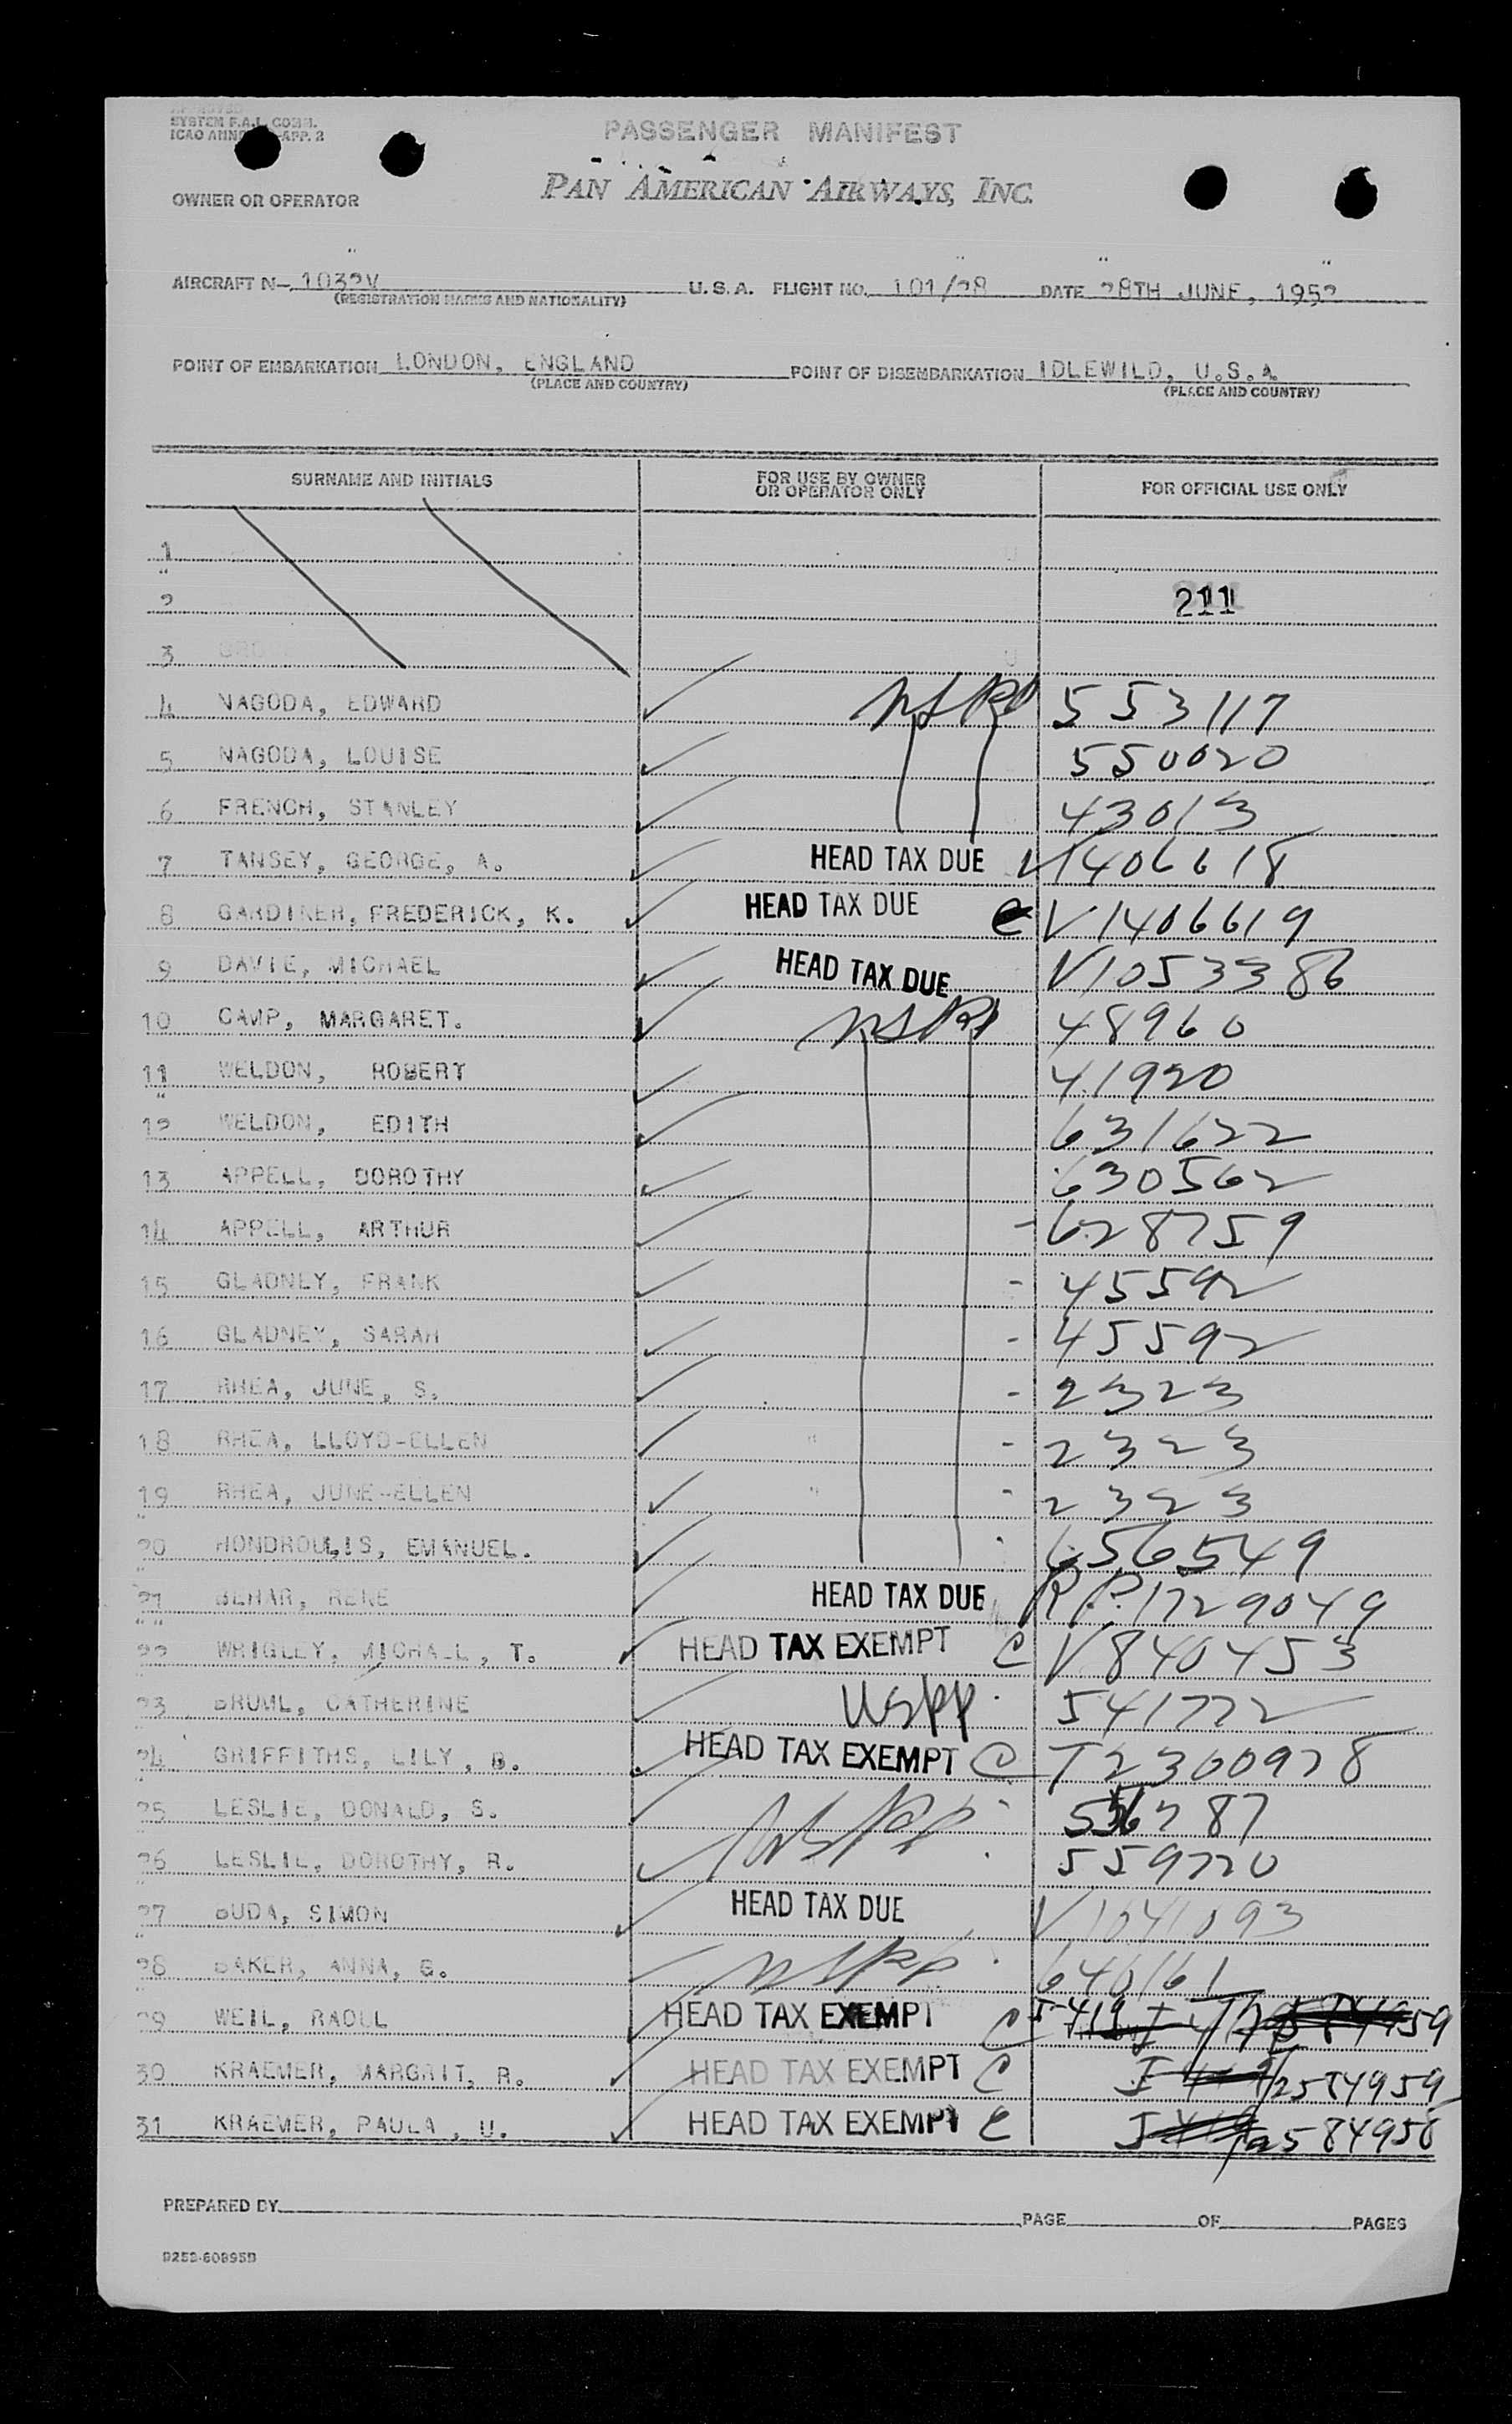 APPROVED
SYSTEM F.A.L. COMM.
ICAO -APP. 2
PASSENGER MANIFEST
PAN AMERICAN AIRWAYS, INC.
OWNER OR OPERATOR
AIRCRAFT N- 1032V U.S.A. FLIGHT NO. 101/28 DATE 28TH JUNE, 1952
(REGISTRATION MARKS AND NATIONALITY)
POINT OF EMBARKATION LONDON, ENGLAND POINT OF DISEMBARKATION IDLEWILD, U.S.A.
(PLACE AND COUNTRY) (PLACE AND COUNTRY)
SURNAME AND INITIALS FOR USE BY OWNER OR OPERATOR ONLY FOR OFFICIAL USE ONLY
1
2 211
3
4 NAGODA, EDWARD 553117
5 NAGODA, LOUISE 550020
6 FRENCH, STANLEY 43013
7 TANSEY, GEORGE, A. HEAD TAX DUE V1406618
8 GARDINER, FREDERICK, K. HEAD TAX DUE C V1406619
9 DAVIE, MICHAEL HEAD TAX DUE V1053386
10 CAMP, MARGARET. 48960
11 WELDON, ROBERT 41920
12 WELDON, EDITH 631622
13 APPELL, DOROTHY 630562
14 APPELL, ARTHUR 628759
15 GLADNEY, FRANK 45592
16 GLADNEY, SARAH 45592
17 RHEA, JUNE, S. 2323
18 RHEA, LLOYD-ELLEN 2323
19 RHEA, JUNE-ELLEN 2323
20 HONDROULIS, EMANUEL. 656549
21 BEHAR, RENE HEAD TAX DUE RP.1729049
22 WRIGLEY, MICHAEL, T. HEAD TAX EXEMPT C V840453
23 BRUML, CATHERINE USPP 541722
24 GRIFFITHS, LILY, B. HEAD TAX EXEMPT C T2300928
25 LESLIE, DONALD, S. USPP
26 LESLIE, DOROTHY, R. 559720
27 BUDA, SIMON HEAD TAX DUE V1041093
28 BAKER, ANNA, G. 640161
29 WEIL, RAOUL HEAD TAX EXEMPT C
30 KRAEMER, MARGRIT, R. HEAD TAX EXEMPT C I 2584959
31 KRAEMER, PAULA, U. HEAD TAX EXEMPT C I 2584958
PREPARED BY PAGE OF PAGES